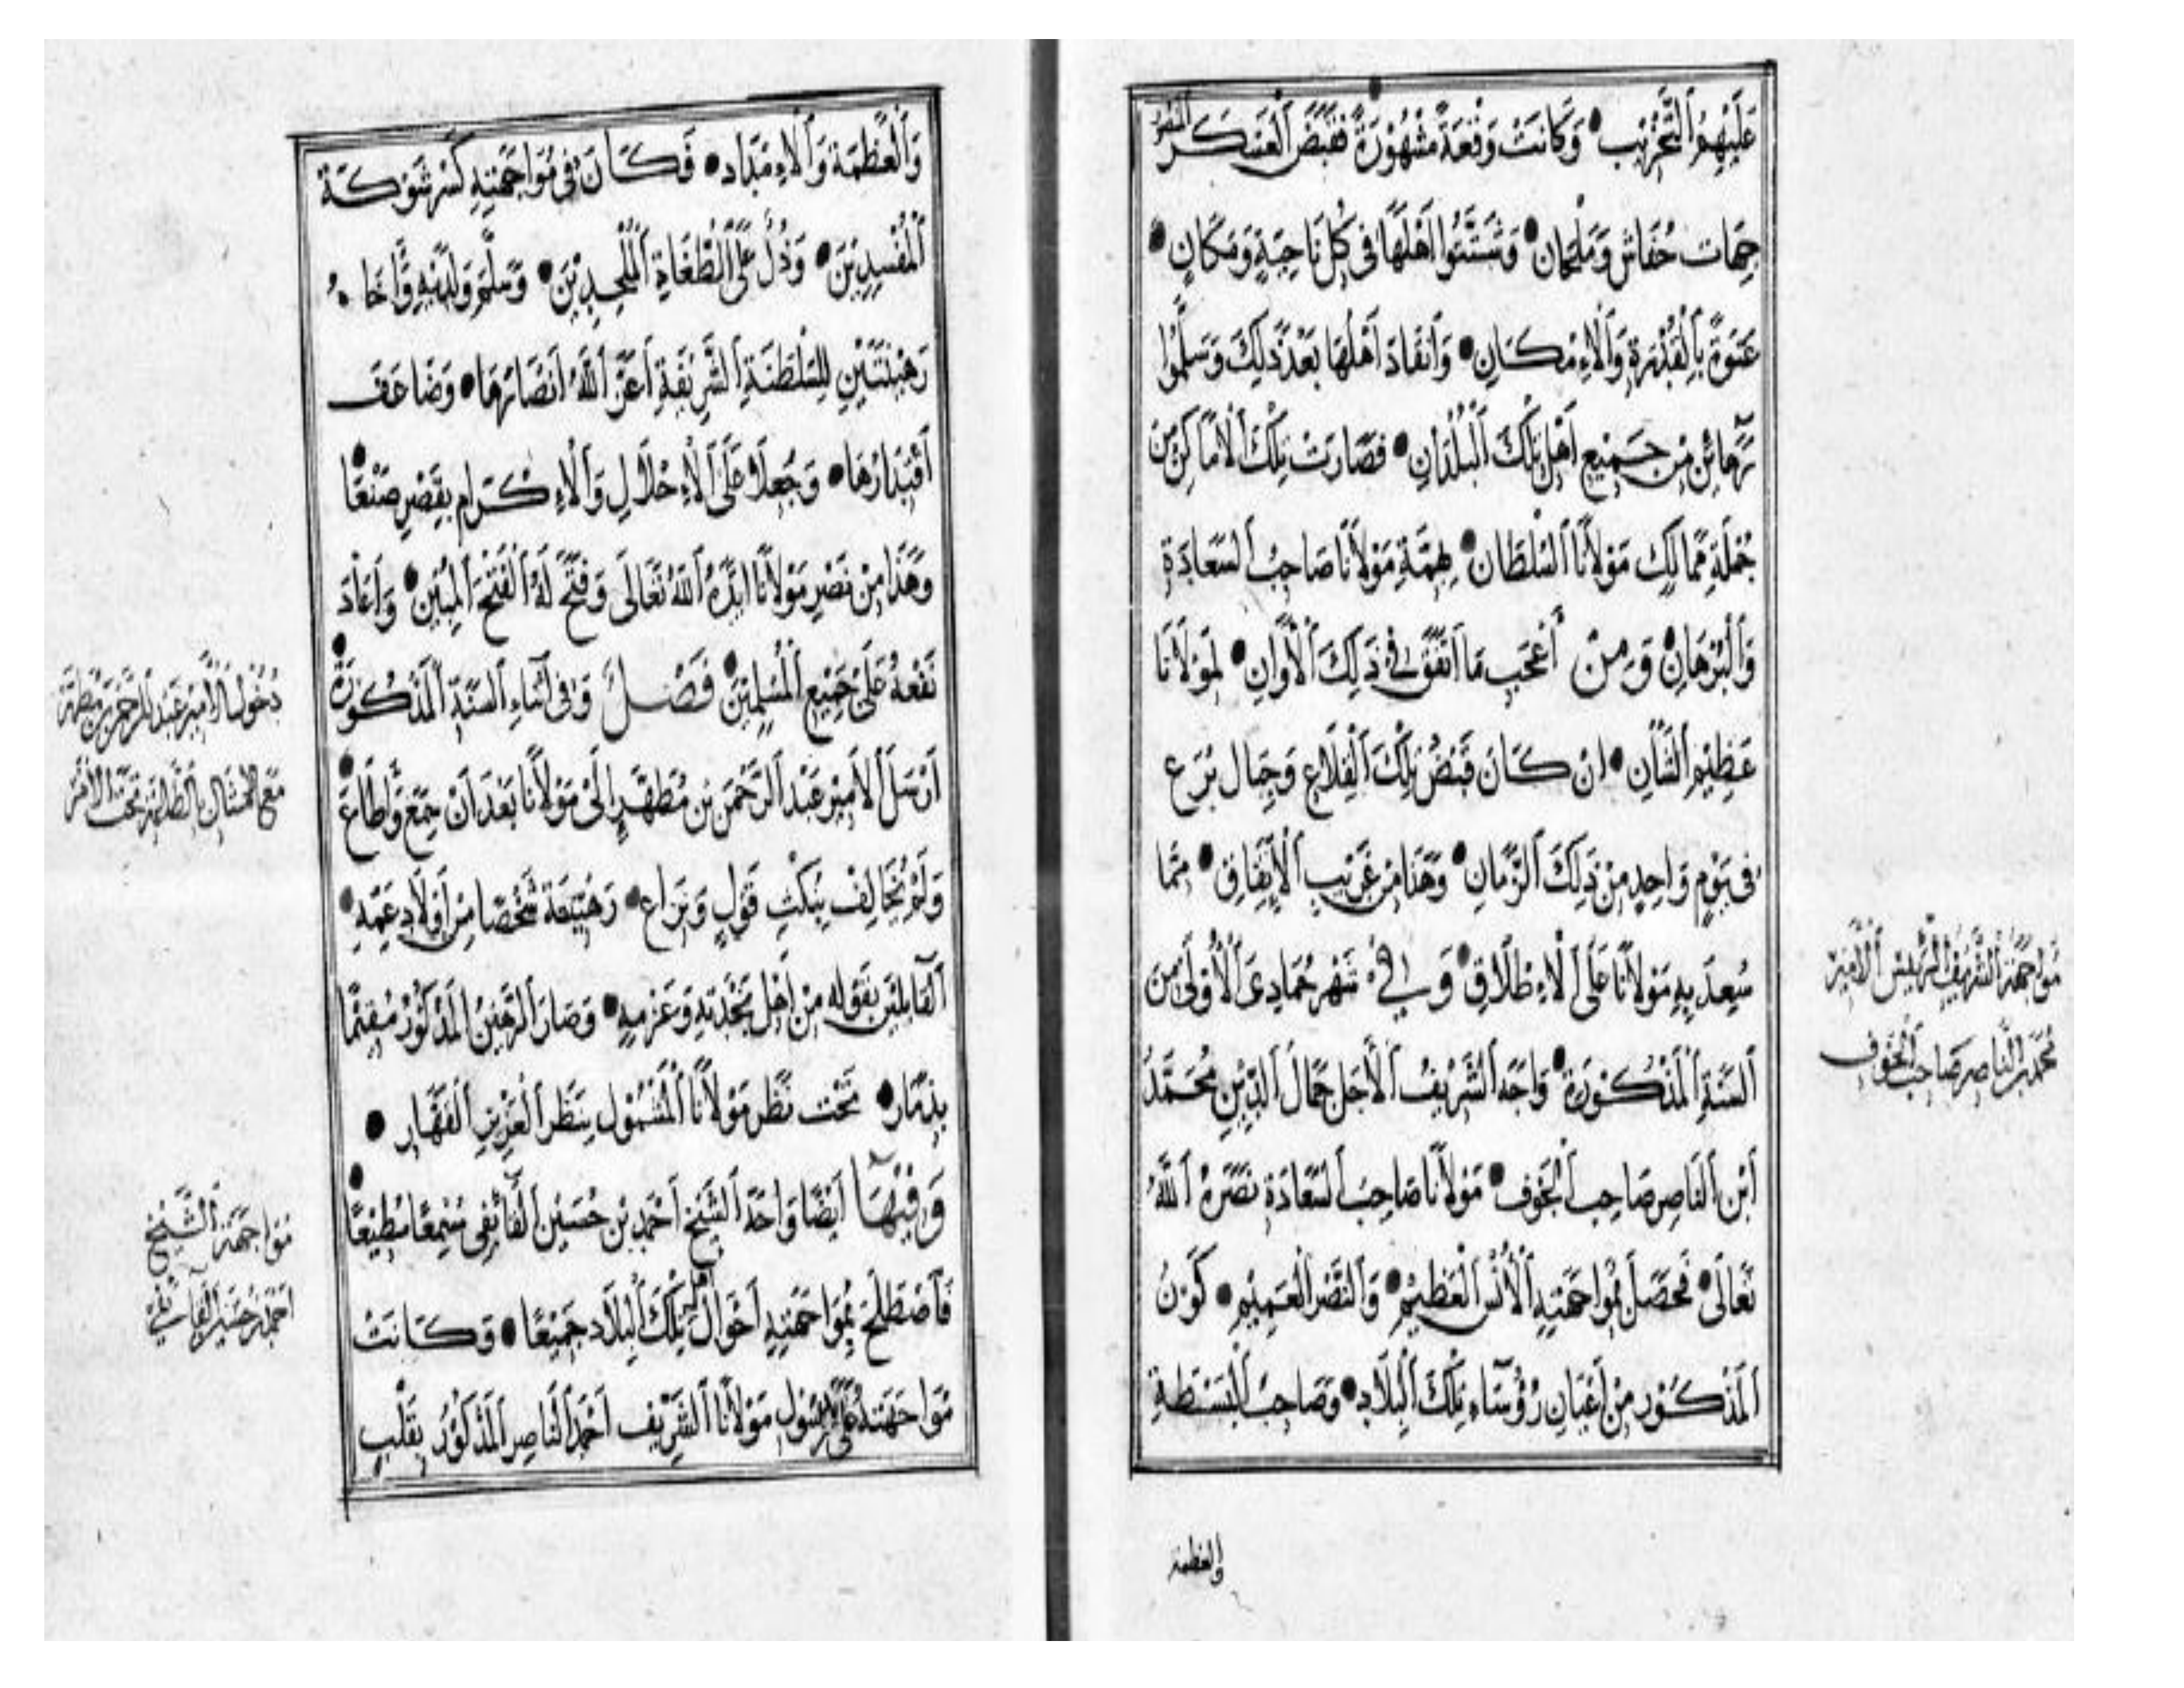 عَلَيْهِمُ ٱلتَّخْرِيب • وَكَانَتْ وَقْعَةً مَشْهُوْرَةً فَقَبَضَ ٱلْعَسْكَر
جِهَات حُفَاش وَمَلْحَان • وَشَتَّتُوا اَهْلَهَا فِى كُلِّ نَاحِيَةٍ وَمَكَانٍ •
عَنْوَةً بِٱلْقُدْرَةِ وَٱلْاِمْكَانِ • وَٱنْقَادَ اَهْلُهَا بَعْدَ ذٰلِكَ وَسَلَّمُوا
رَهَائِنَ مِنْ جَمِيْعِ اَهْلِ تِلْكَ ٱلْبُلْدَانِ • فَصَارَتْ تِلْكَ ٱلْاَمَاكِنَ مِنْ
جُمْلَةِ مَمَالِكِ مَوْلَانَا ٱلسُّلْطَان • بِهِمَّةِ مَوْلَانَا صَاحِبُ ٱلسَّعَادَةِ
وَٱلْبُرْهَانِ • وَمِنْ أَعْجَبِ مَا ٱتَّفَقَ فِي ذٰلِكَ ٱلْأَوَانِ • لِمَوْلَانَا
عَظِيْمِ ٱلشَّأنِ • انْ كَانَ قَبْضُ تِلْكَ ٱلْقِلَاعِ وَجِبَالِ بُرَع
فِى يَوْمٍ وَاحِدٍ مِنْ ذٰلِكَ ٱلزَّمَانِ • وَهٰذَا مِنْ غَرِيْبِ ٱلْاِتِّفَاقِ • مِمَّا
سُعِدَ بِهِ مَوْلَانَا عَلَى ٱلْاِطْلَاقِ • وَفِي شَهْرِ جُمَادِى ٱلْأُوْلَى مِنَ
ٱلسَّنَةِ ٱلْمَذْكُوْرَةِ • وَاجَهَ ٱلشَّرِيْفُ ٱلْأَجَل جَمَالُ ٱلدِّيْنِ مُحَمَّدُ
ٱبْن ٱلنَّاصِر صَاحِبِ ٱلْجَوْف • مَوْلَانَا صَاحِبَ ٱلسَّعَادَةِ نَصَرَهُ ٱللّٰهُ
تَعَالَى • فَحَصَلَ بِمُوَاجَهَتِهِ ٱلْأُنْسُ ٱلْعَظِيْمُ • وَٱلنَّصْرُ ٱلْعَمِيْمُ • كَوْنُ
ٱلْمَذْكُوْرِ مِنْ اَعْيَانِ رُؤَسَاءِ تِلْكَ ٱلْبِلَادِ • وَصَاحِبُ ٱلْبَسْطَةِ
والعظمة
مواجهة الشريف الرئيس الأمير
محمد بن الناصر صاحب الجوف
وَٱلْعَظَمَة وَٱلْاِمْدَاد • فَكَانَ فِى مُوَاجَهَتِهِ كَسْرُ شَوْكَة
ٱلْمُفْسِدِيْنَ • وَذُلٌّ عَلَى ٱلطُّغَاةِ ٱلْمُلْحِدِيْنَ • وَسَلَّمَ وَلَدَيْهِ وَاَخَاهُ
رَهِيْنَتَيْنِ لِلسَّلْطَنَةِ ٱلشَّرِيْفَةِ اَعَزَّ ٱللّٰهُ اَنْصَارَهَا • وَضَاعَفَ
ٱقْتِدَارَهَا • وَجُعِلَا عَلَى ٱلْاِجْلَالِ وَٱلْاِكْرَامِ بِقَصْرِ صَنْعَا •
وَهٰذَا مِنْ نَصْرِ مَوْلَانَا اَيَّدَهُ ٱللّٰهُ تَعَالَى وَفَتَحَ لَهُ ٱلْفَتْحَ ٱلْمُبِيْن • وَاَعَادَ
نَفْعَهُ عَلَى جَمِيْعِ ٱلْمُسْلِمِيْنَ • فَصْلٌ وَفِى اَثْنَاءِ ٱلسَّنَةِ ٱلْمَذْكُوْرَةِ •
اَرْسَلَ ٱلْاَمِيْر عَبْد ٱلرَّحْمٰن بْن مُطَهَّر اِلَى مَوْلَانَا بَعْدَ اَنْ سَمِعَ وَاَطَاعَ •
وَلَمْ يُخَالِفْ بِنَكْثِ قَوْلٍ وَنِزَاع • رَهِيْنَةً شَخْصًا مِنْ اَوْلَادِ عَمِّهِ •
ٱلْقَآئِلِيْنَ بِقَوْلِهِ مِنْ اَهْلِ نَجْدَتِهِ وَعَزْمِهِ • وَصَارَ ٱلرَّهِيْنُ ٱلْمَذْكُوْرُ مُقِيْمًا
بِذَمَار • تَحْتَ نَظَرِ مَوْلَانَا ٱلْمَشْمُوْلِ بِنَظَرِ ٱلْعَزِيْزِ ٱلْقَهَّارِ •
وَفِيْهَا اَيْضًا وَاجَهَ ٱلشَّيْخ اَحْمَد بْن حُسَيْن ٱلْفَآئِفِى سَمِيْعًا مُطِيْعًا •
فَٱصْطَلَحَ بِمُوَاجَهَتِهِ اَحْوَالُ تِلْكَ ٱلْبِلَاد جَمِيْعًا • وَكَانَتْ
مُوَاجَهَتُهُ مَوْلَانَا ٱلشَّرِيْف اَحْمَد ٱلنَّاصِر ٱلْمَذْكُوْر بِقَلْبٍ
دخول الأمير عبد الرحمن بن مطهر
مع الامتثال بالطاعة تحت الأمر
مواجهة الشيخ
احمد بن حسين الفائفي